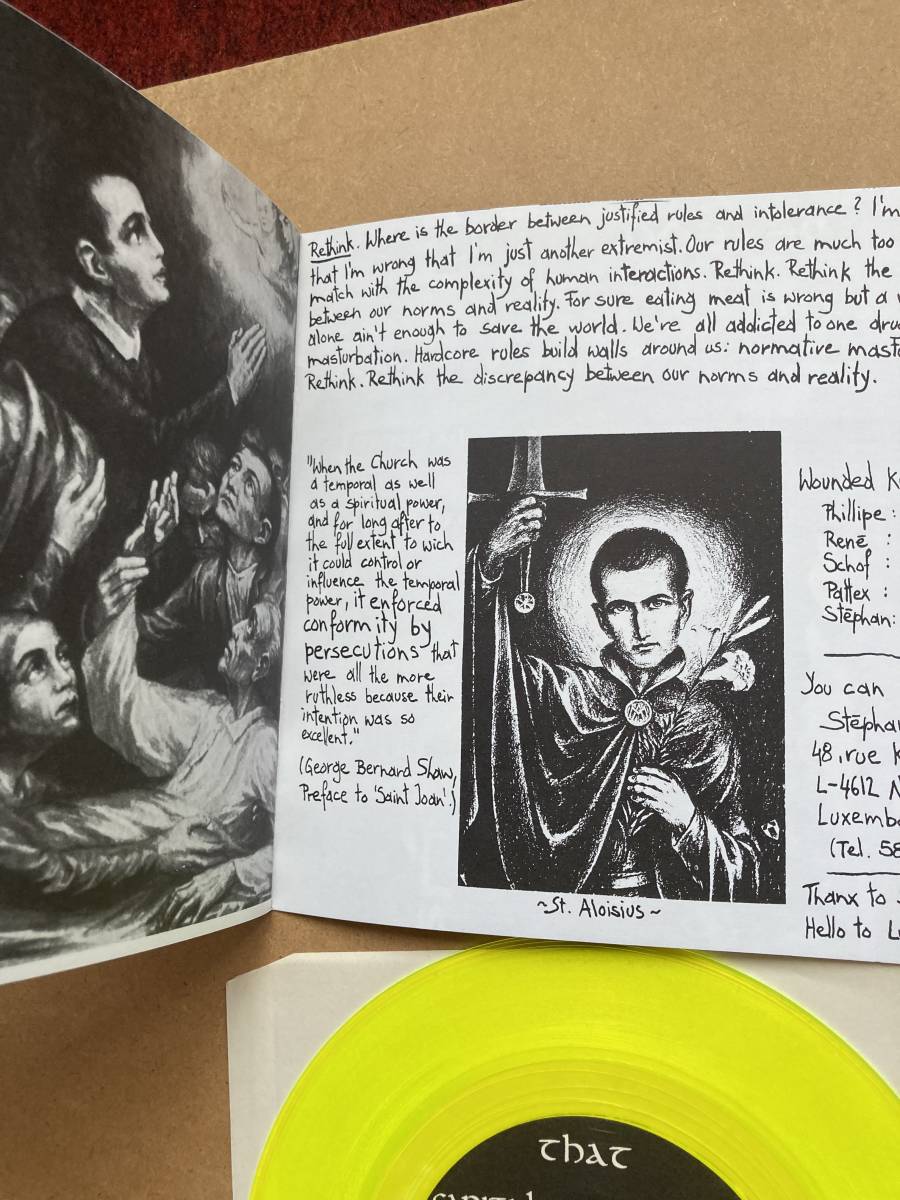 Rethink. Where is the border between justified rules and intolerance? I'm
that I'm wrong that I'm just another extremist. Our rules are much too
match with the complexity of human interactions. Rethink. Rethink the
between our norms and reality. For sure eating meat is wrong but a
alone ain't enough to save the world. We're all addicted to one
masturbation. Hardcore rules build walls around us: normative
Rethink. Rethink the discrepancy between our norms and reality.
"When the Church was
a temporal as well
as a spiritual power,
and for long after to
the full extent to wich
it could control or
influence the temporal
power, it enforced
conformity by
persecutions that
were all the more
ruthless because their
intention was so
excellent."
(George Bernard Shaw,
Preface to 'Saint Joan'.)
~St. Aloisius~
Wounded
Phillipe:
René :
Schof :
Pattex :
Stéphan:
You can
48, rue
L-4612
(Tel. 58
Thanx to
Hello to
that